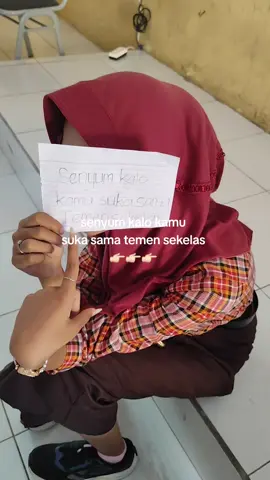 Senyum kalo
kamu suka sama
senyum kalo kamu
suka sama temen sekelas